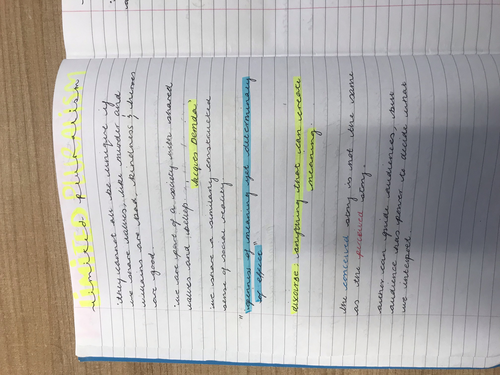 LIMITED PLURALISM
limited pluralism
they cannot all be unique if
we share values, like murder and
villains are bad, kindness & heroes
are good
we are part of a society with shared
values and beliefs
we share a similarly constructed
sense of social reality
"openness of meaning yet determinacy
of effect"
discourse: anything that can create
meaning.
the conceived story is not the same
as the perceived story.
author can guide audiences, but
audience has power to decide what
we interpret